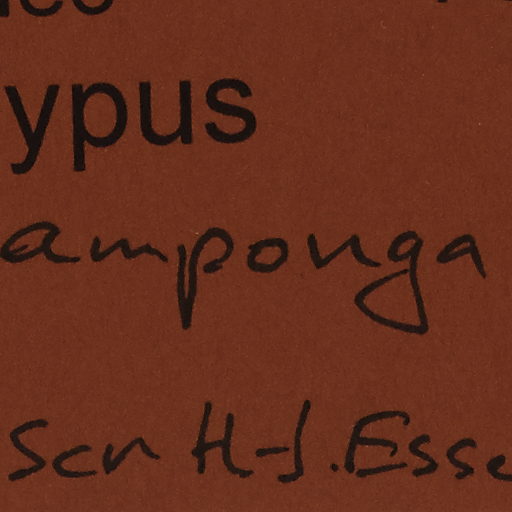 ypus
amponga
Scr H-J. Esse